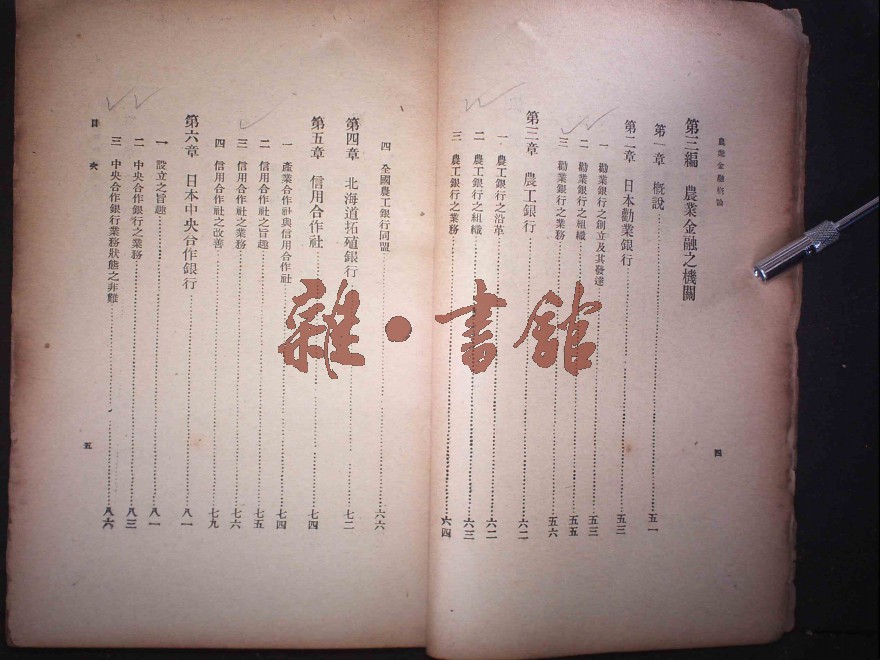 農業金融概論
第三編 農業金融之機關
第一章 概說……五一
第二章 日本勸業銀行……五三
一 勸業銀行之創立及其發達……五三
二 勸業銀行之組織……五五
三 勸業銀行之業務……五六
第三章 農工銀行……六二
一 農工銀行之沿革……六二
二 農工銀行之組織……六三
三 農工銀行之業務……六四
四
四 全國農工銀行同盟……六六
第四章 北海道拓殖銀行……七二
第五章 信用合作社……七四
一 產業合作社與信用合作社……七四
二 信用合作社之旨趣……七五
三 信用合作社之業務……七六
四 信用合作社之改善……七九
第六章 日本中央合作銀行……八一
一 設立之旨趣……八一
二 中央合作銀行之業務……八三
三 中央合作銀行業務狀態之非難……八六
目次
五
雜·書館